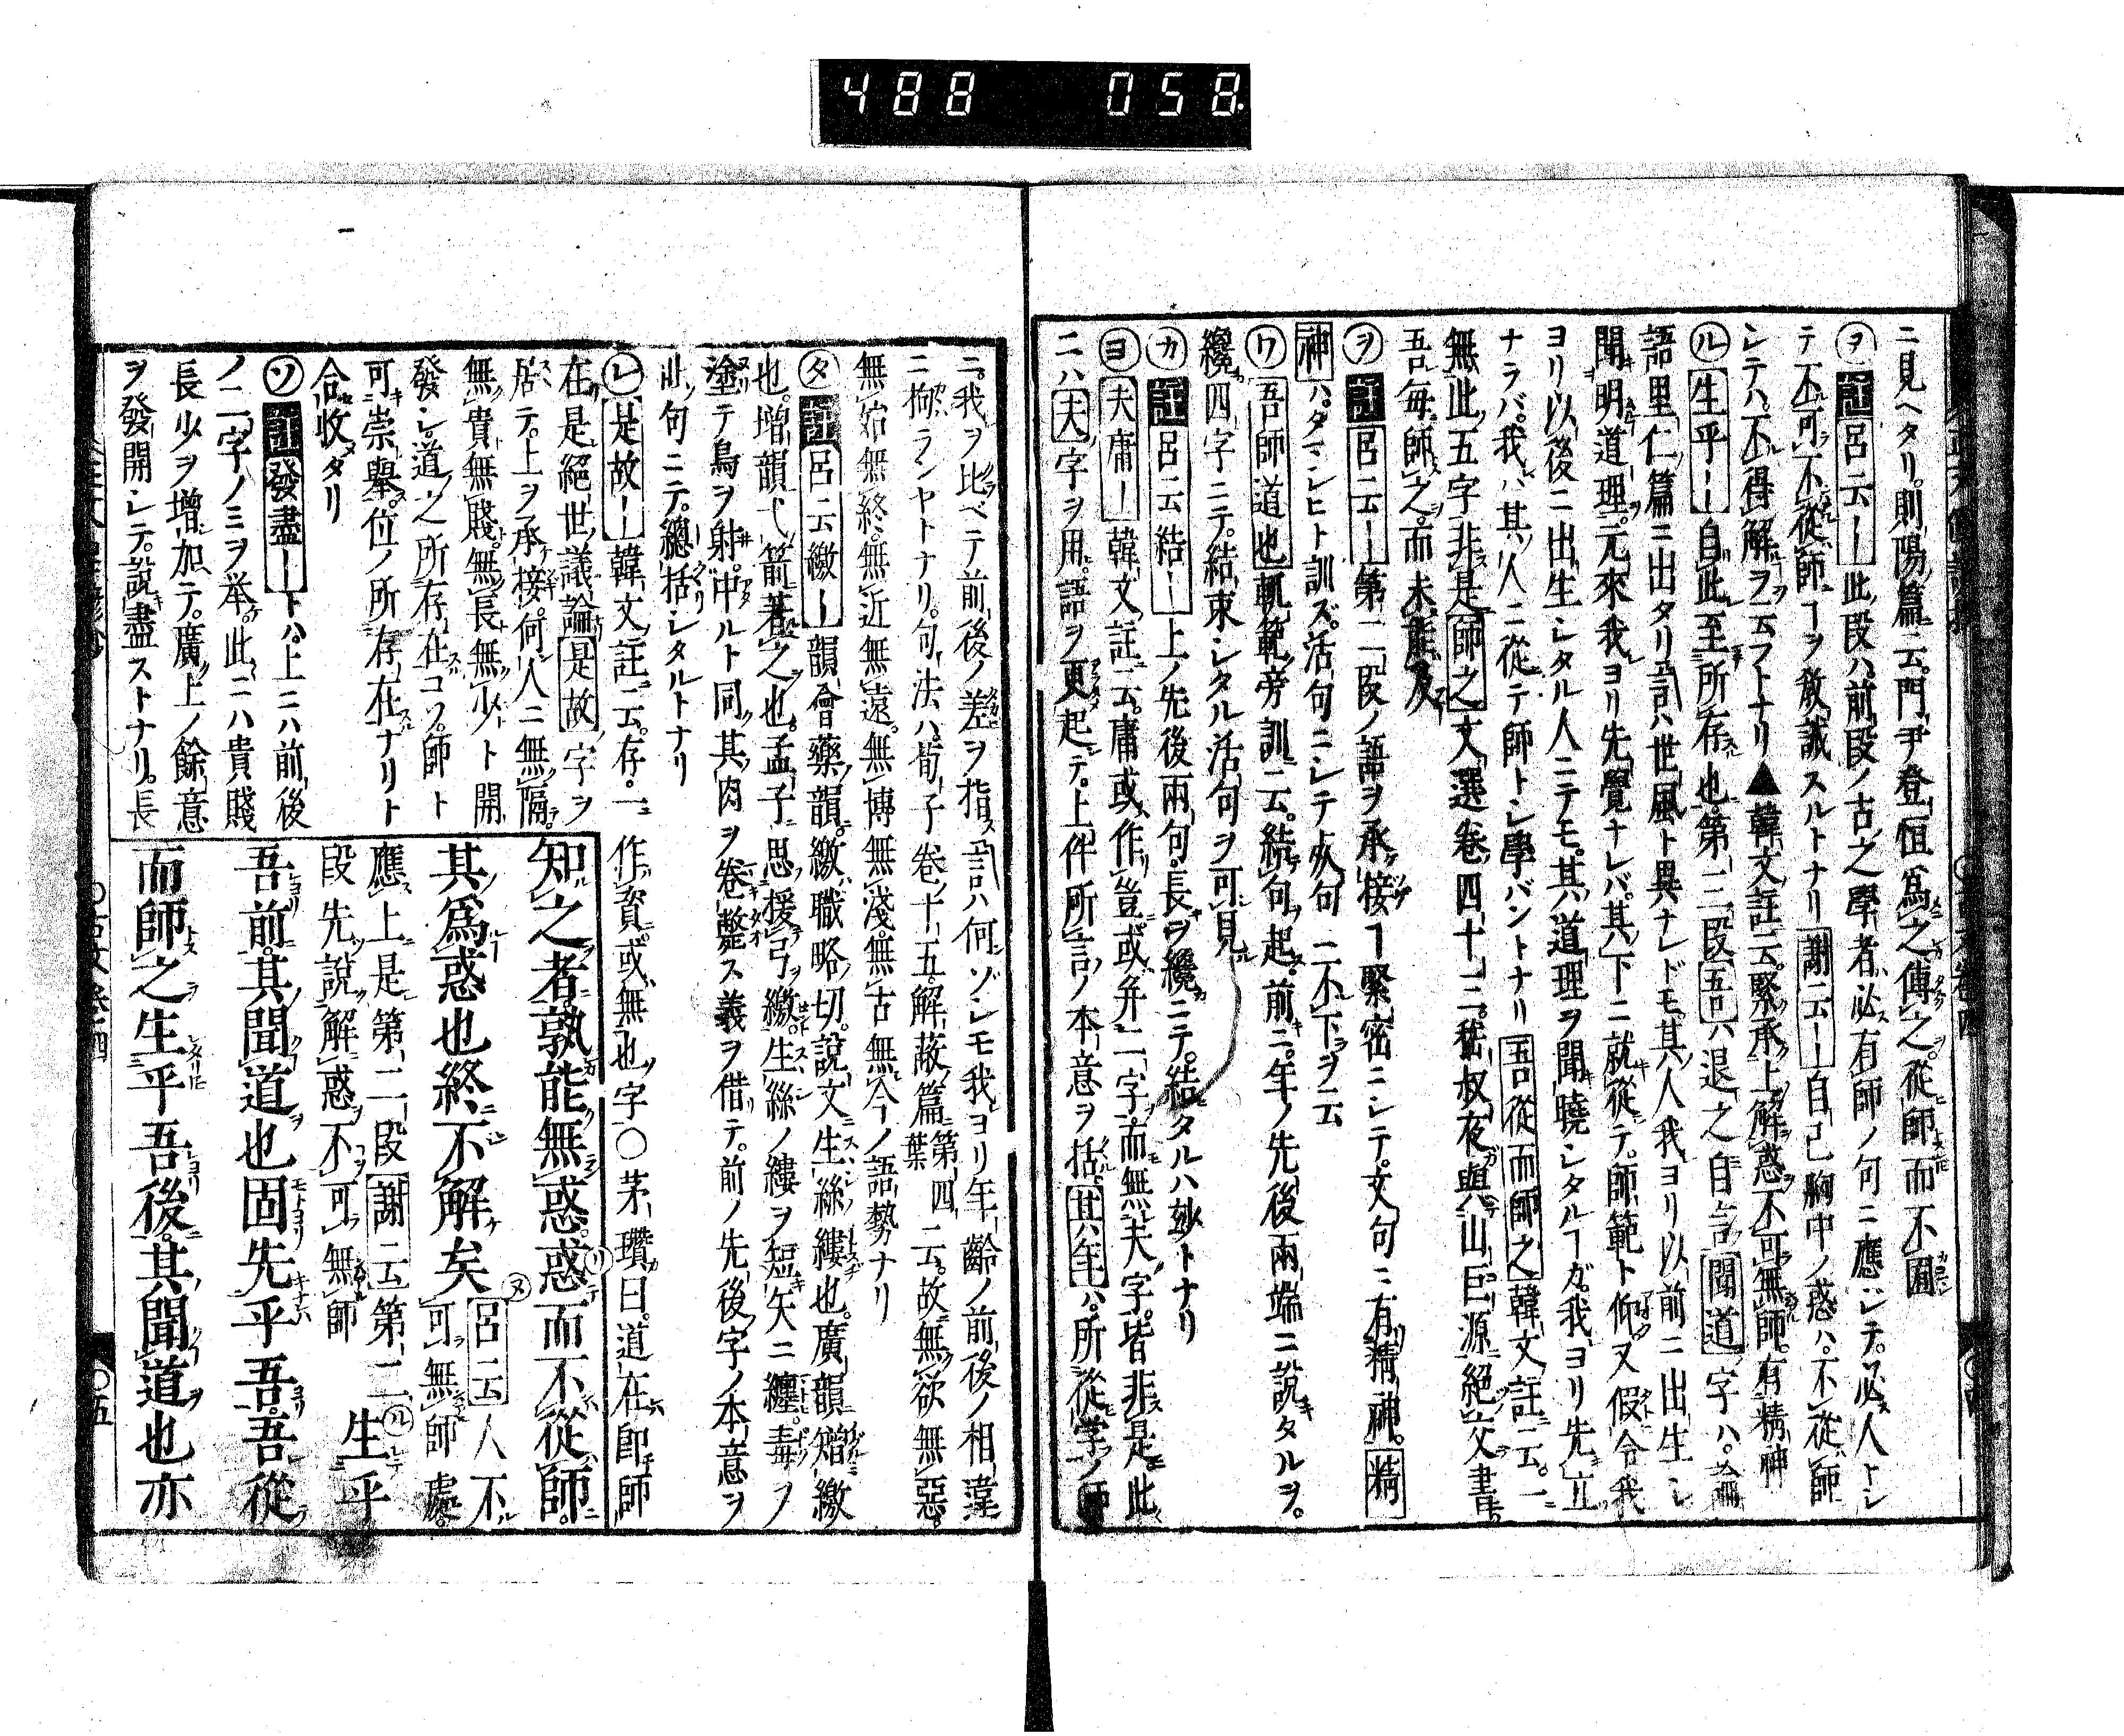 488 058
ニ見ヘタリ。則陽篇ニ云。門尹登恒爲之傅之。從師而不囿
㋾註呂云｜此段ハ前段ノ古之學者必有師ノ句ニ應ジテ。必ス人トシ
テ不可不從師ヿヲ教誡スルトナリ謝云｜自己胸中ノ惑ハ。不從師
シテハ。不得解ヲ云フトナリ▲韓文註云。緊承上解惑不可無師。有精神
㋸生乎｜｜自此至所存也。第三段吾ハ退之自言聞道字ハ。論
語里仁篇ニ出タリ言ハ世風ト異ナレドモ。其人我ヨリ以前ニ出生シ
聞明道理。元來我ヨリ先覺ナレバ。其下ニ就從テ。師範ト仰又假令我
ヨリ以後ニ出生シタル人ニテモ。其道理ヲ聞曉シタルヿガ。我ヨリ先立
ナラバ。我ハ其人ニ從テ師トシ學バントナリ吾從而師之韓文註云。一
無此五字非是師之文選卷四十二。嵆叔夜與山巨源絕交書
吾毎師之。而未能及
㋾註呂云｜第二段ノ語ヲ承接ヿ緊密ニシテ。文句ニ有精神。精
神ハ。タマシヒト訓ズ。活句ニシテ㱃句ニ不下ヲ云
㋻吾師道也軌範旁訓云。續句起。前ニ。年ノ先後兩端ニ說タルヲ。
纔四字ニテ。結束シタル活句ヲ可見
㋕註呂云結｜上ノ先後兩句。長ヲ纔ニテ。結タルハ妙トナリ
㋵夫庸｜韓文註云。庸或作豈或并二字而無夫字。皆非是此
ニハ夫字ヲ用。語ヲ更起テ。上件所言ノ本意ヲ括其年ハ。所從学ノ師
ニ。我ヲ比ベテ前後ノ差ヲ指ス言ハ何ゾシモ我ヨリ年齡ノ前後ノ相違
ニ拘ランヤトナリ。句法ハ。荀子卷十五。解蔽篇第四葉ニ云。故無欲無惡。
無始無終。無近無遠。無博無淺。無古無今ノ語勢ナリ
㋟註呂云繳｜韻會藥韻。繳職略切。說文生絲縷也。廣韻矰繳
也。增韻弋箭著之也。孟子思援弓繳。生絲ノ縷ヲ短矢ニ纏。毒ヲ
塗テ鳥ヲ射。中ルト同其肉ヲ卷斃ス義ヲ借テ。前ノ先後字ノ本意ヲ
此句ニテ。總括シタルトナリ
㋹是故｜韓文註云。存一作資。或無也字〇茅瓚曰。道在即師
在是絕世議論是故字ヲ
居テ。上ヲ承接。何人ニ無隔。
無貴無賤。無長無少ト開
發シ。道之所存在コソ。師ト
可崇擧。位ノ所存在ナリト
合收タリ
㋞註發盡｜トハ。上ニハ前後
ノ二字ノミヲ举。此ニハ貴賤
長少ヲ增加テ。廣上ノ餘意
ヲ發開シテ。說盡ストナリ。長
知之者。孰能無惑。惑而不從師。
其爲惑也終不解矣呂云人不可無師處。
應上是第二段謝云第二段先說解惑不可無師
生乎
吾前。其聞道也固先乎吾。吾從
而師之生乎吾後。其聞道也亦